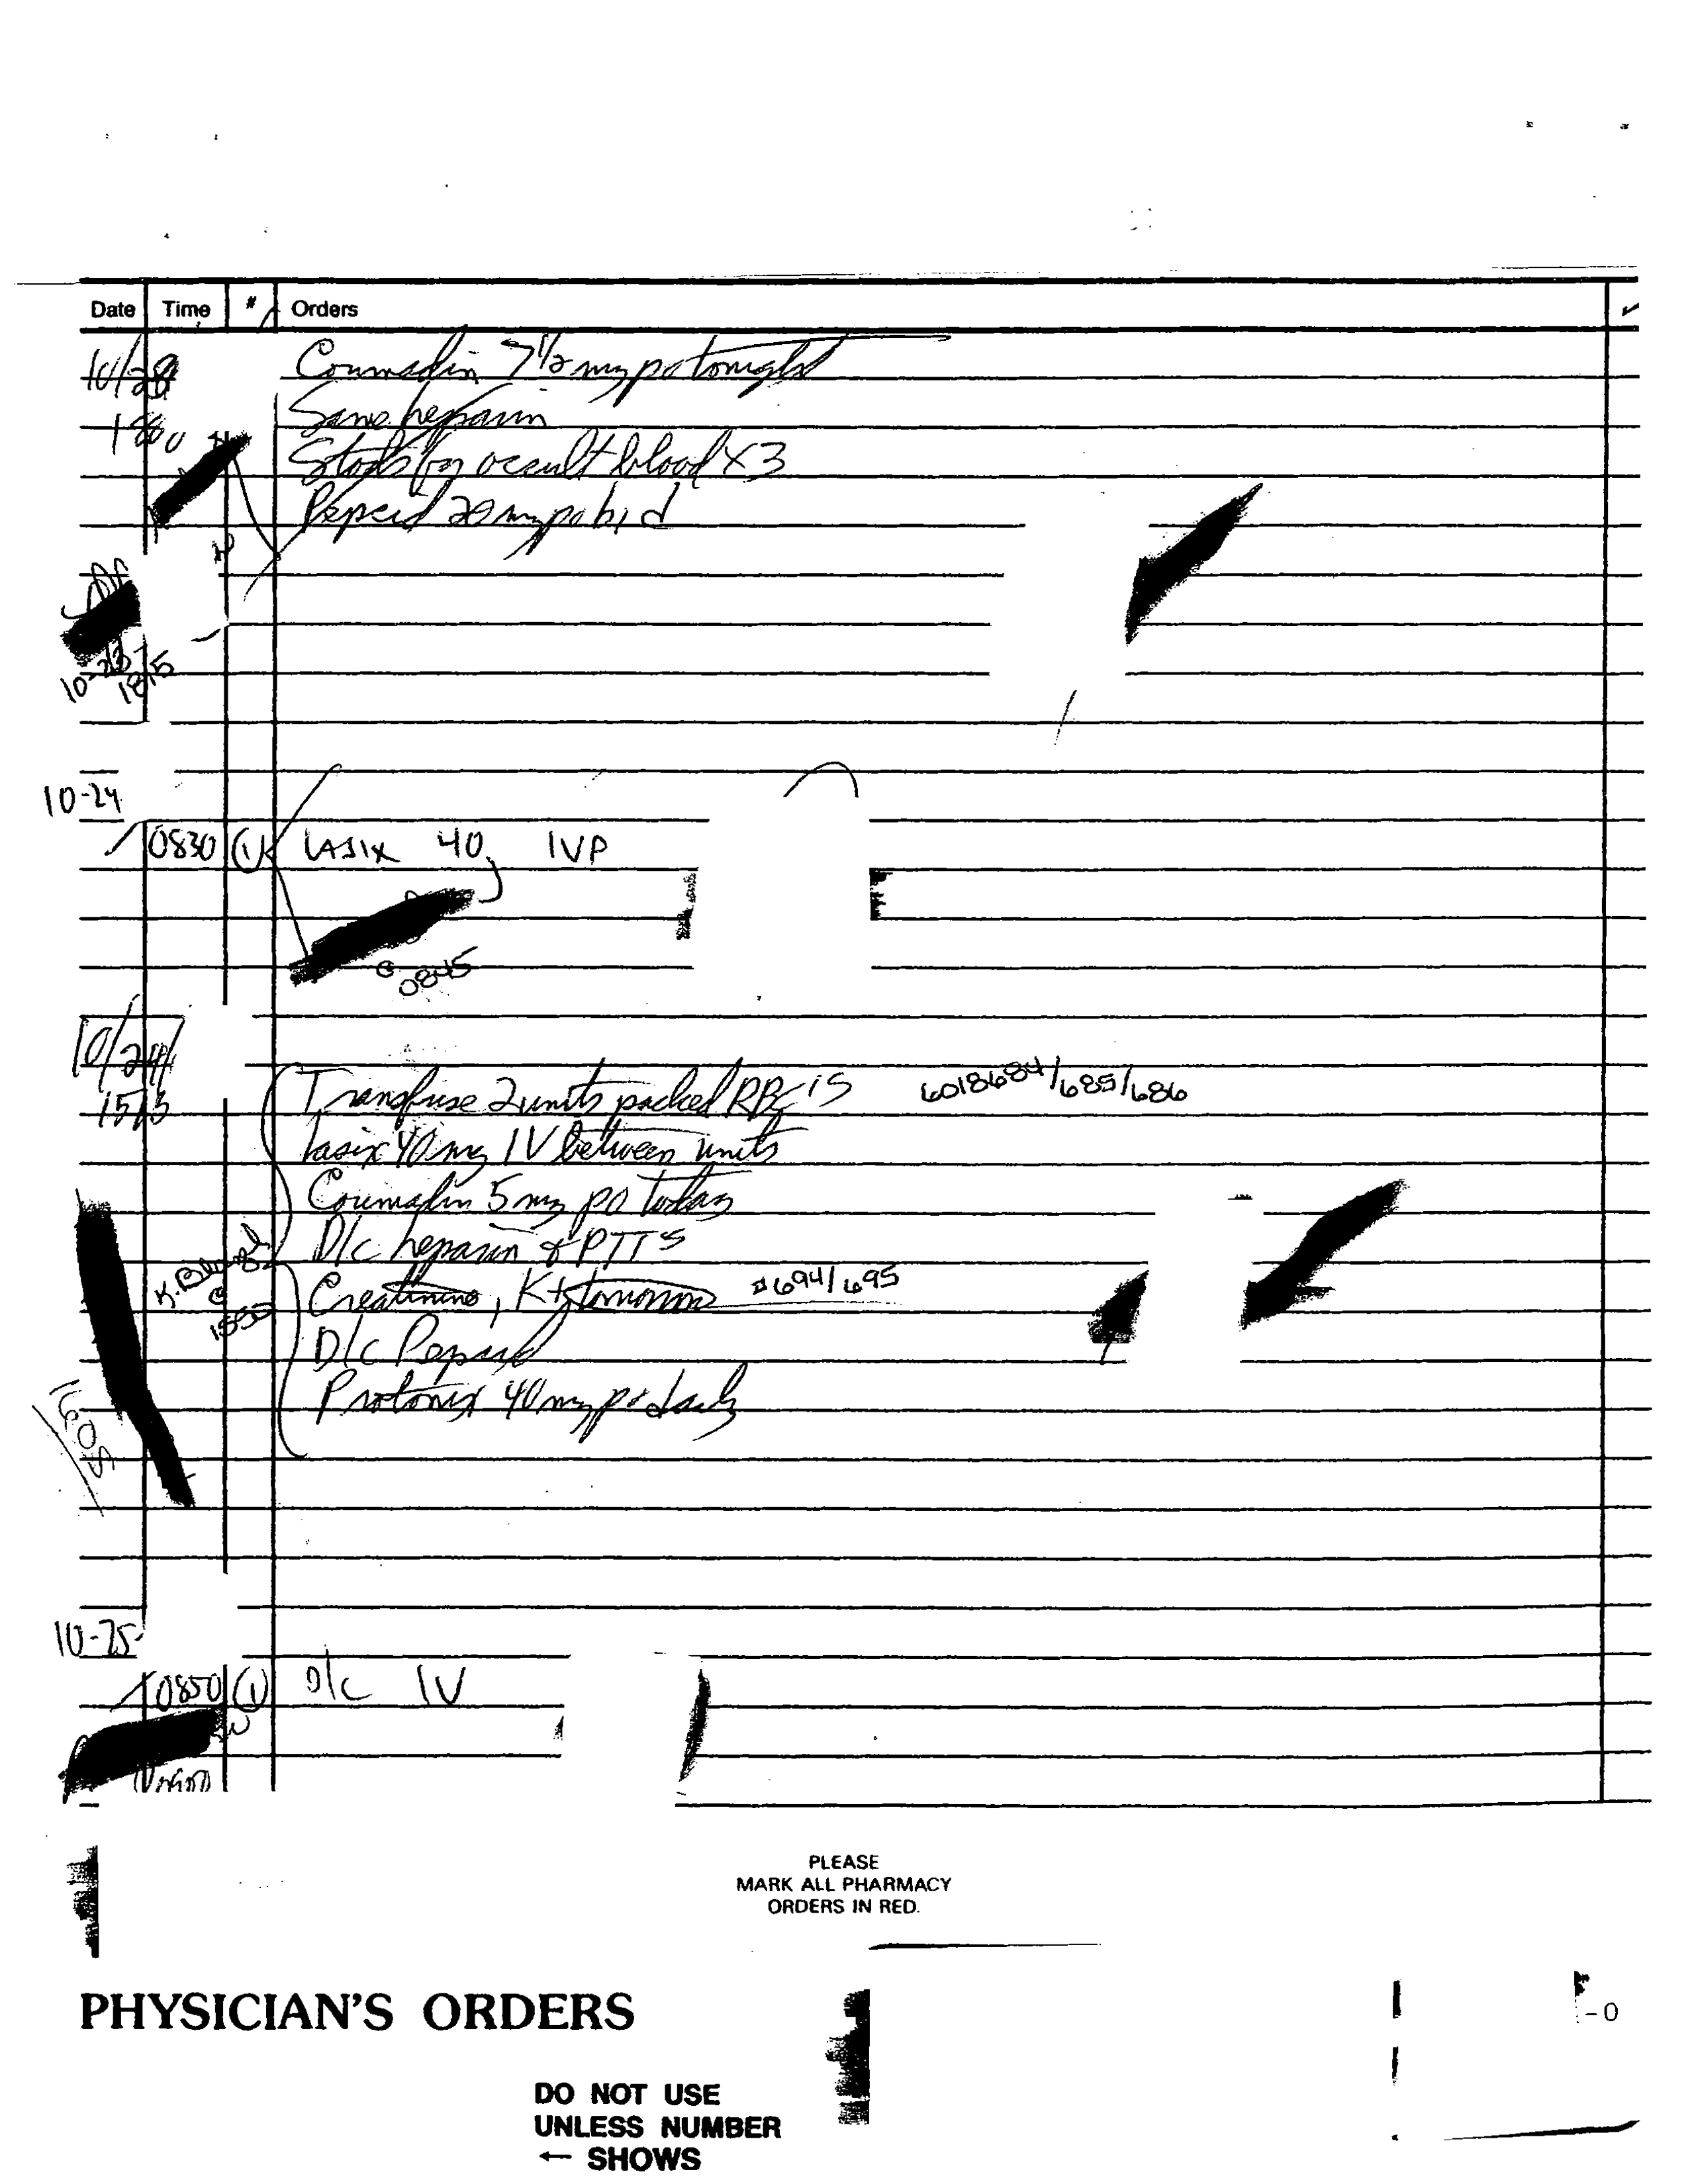 Date Time # Orders
Coumadin 7 1/2 mg po tonight
Same heparin
Stools for occult blood x3
Pepcid 20 mg po bid
10-23
1815
10-24
0830 (1) LASIX 40 IVP
@ 0845
10/24
1513
Transfuse 2 units packed RBC's 6018684/685/686
Lasix 40 mg IV between units
Coumadin 5 mg po today
D/c heparin & PTT's
Creatinine, K+ tomorrow #694/695
D/c Pepcid
Protonix 40 mg po daily
@
1550
1605
10-25
0850 (1) D/C IV
PLEASE
MARK ALL PHARMACY
ORDERS IN RED.
PHYSICIAN'S ORDERS
-0
DO NOT USE
UNLESS NUMBER
← SHOWS